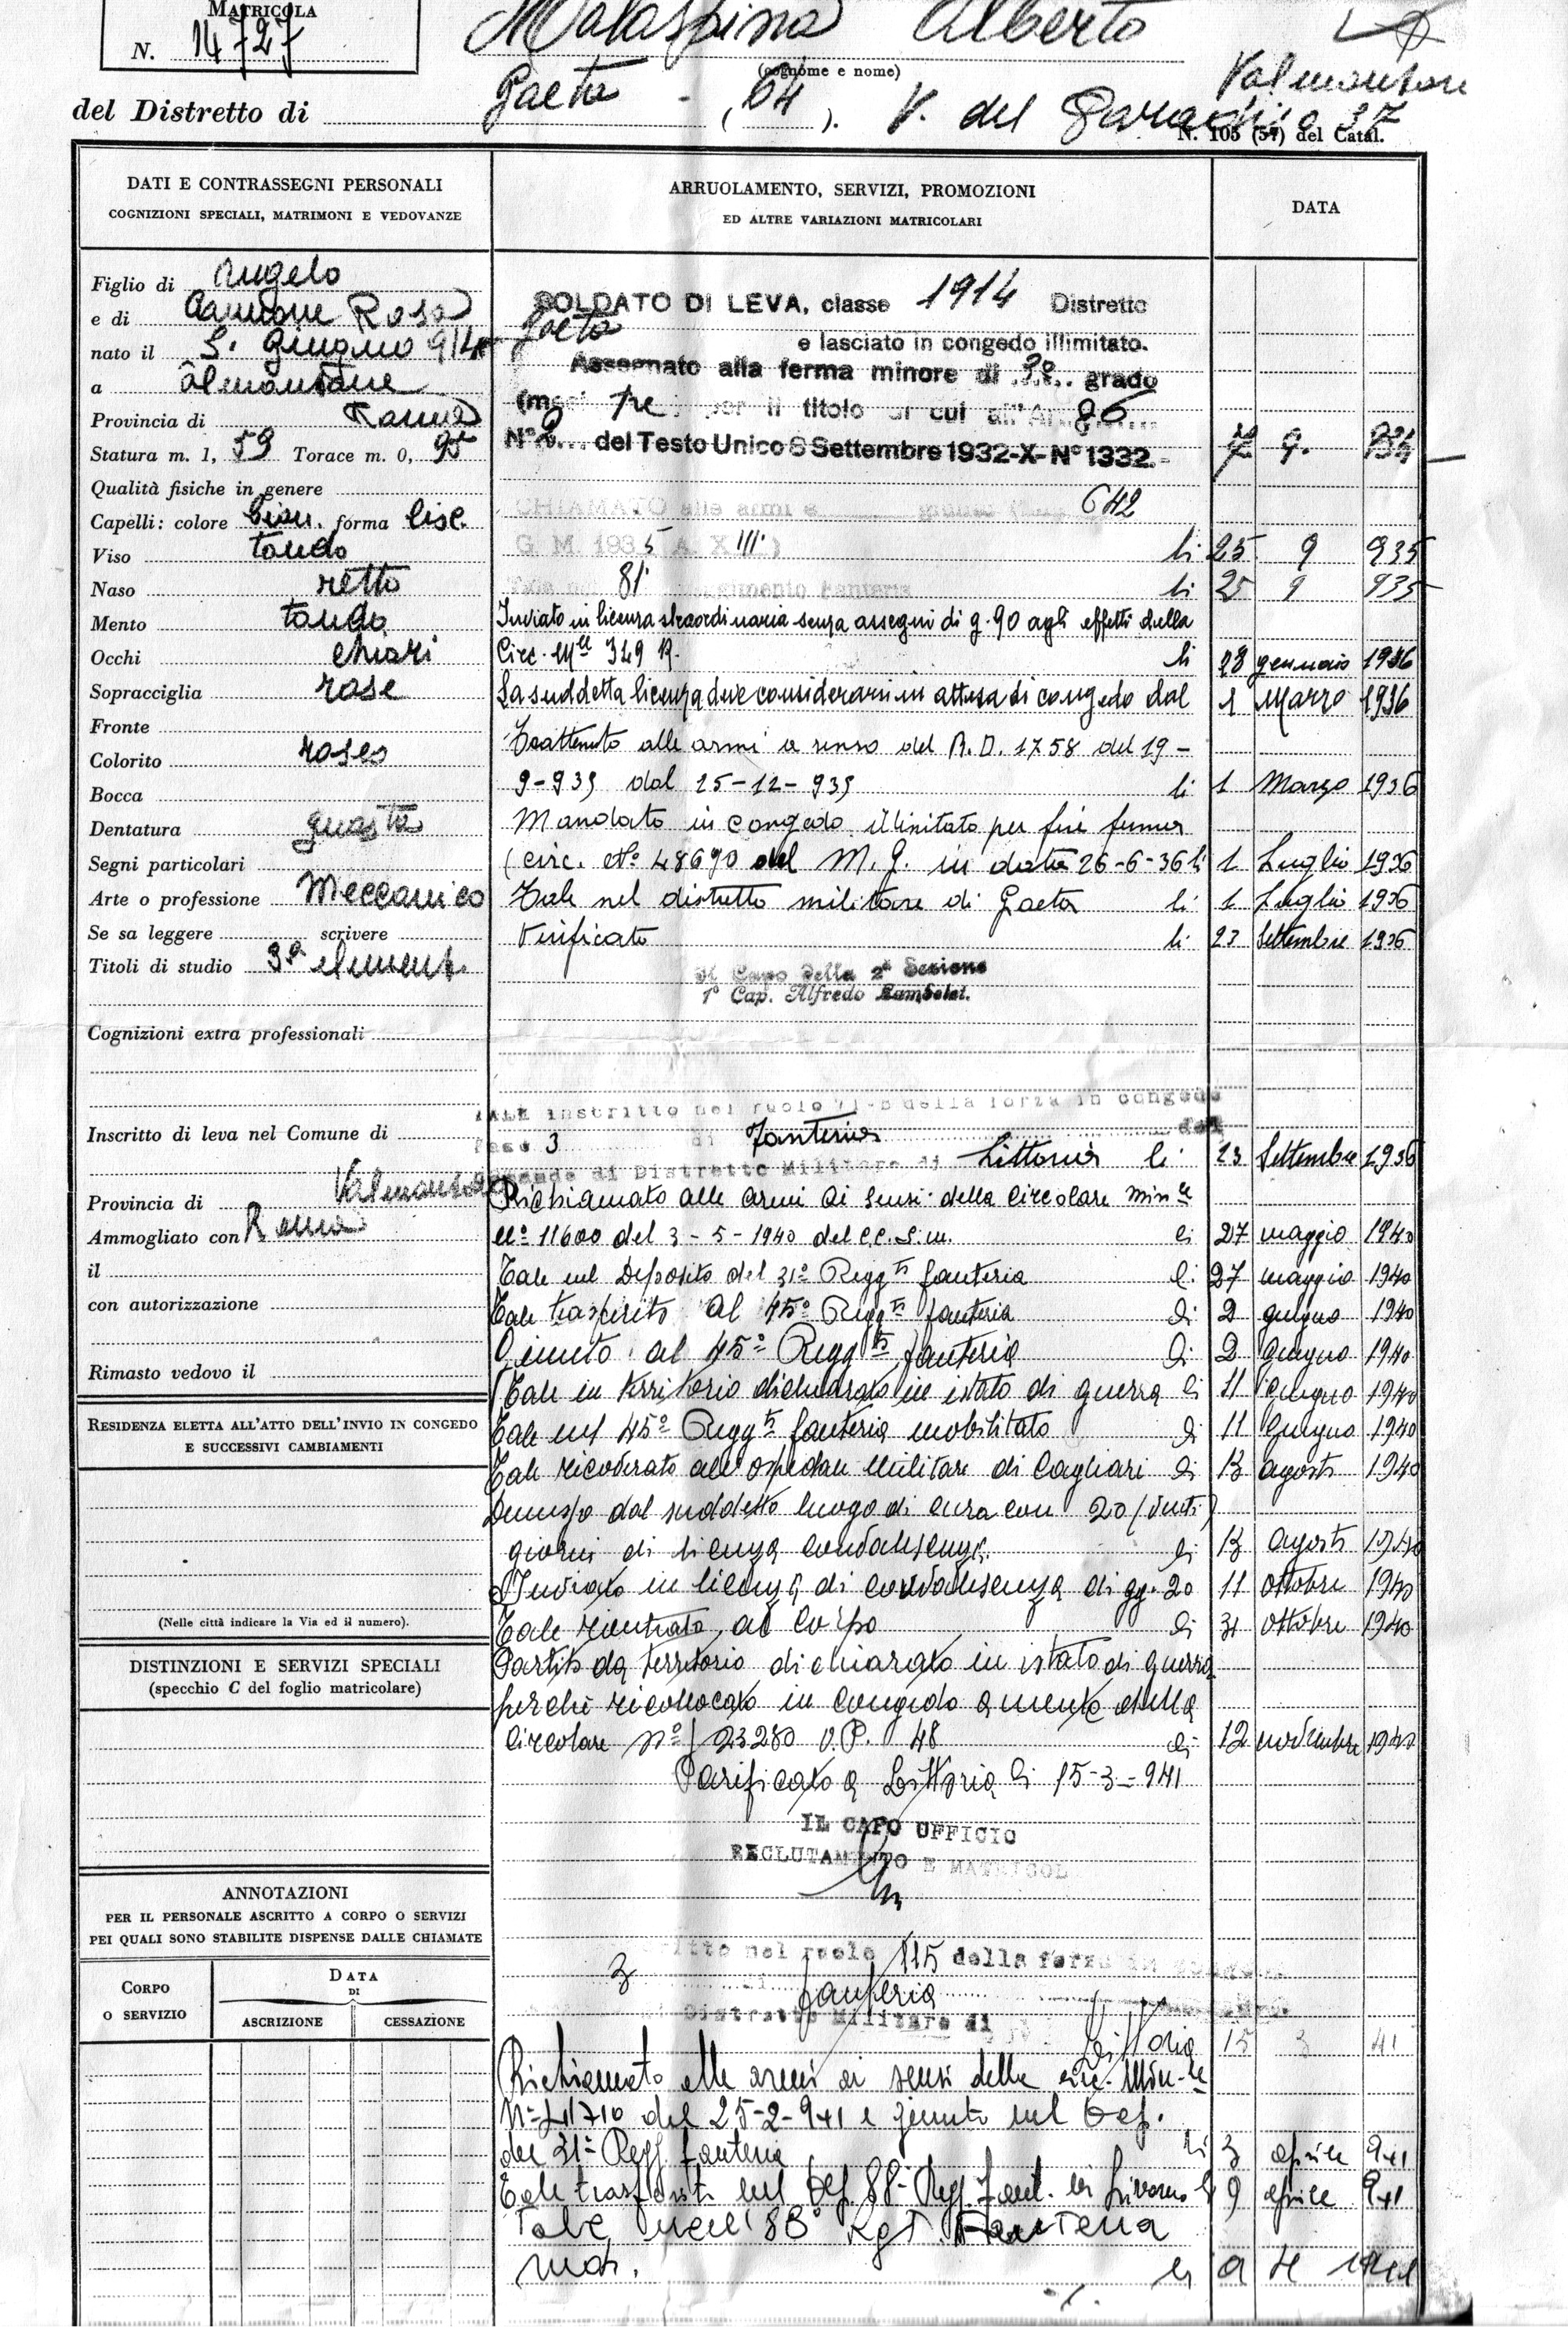 MATRICOLA
N. 14727
Malaspina Alberto
(cognome e nome)
Valmontone
del Distretto di Gaeta - (64). V. del Paradiso 37
N. 105 (54) del Catal.
DATI E CONTRASSEGNI PERSONALI
COGNIZIONI SPECIALI, MATRIMONI E VEDOVANZE
Figlio di Angelo
e di Rosa
nato il 5. Giugno 914
a Valmontone
Provincia di Roma
Statura m. 1, 59 Torace m. 0, 95
Qualità fisiche in genere
Capelli: colore forma lisc.
Viso tondo
Naso retto
Mento tondo
Occhi chiari
Sopracciglia rase
Fronte
Colorito roseo
Bocca
Dentatura guasta
Segni particolari
Arte o professione Meccanico
Se sa leggere scrivere
Titoli di studio 3ª element.
Cognizioni extra professionali
Inscritto di leva nel Comune di
Valmontone
Provincia di
Roma
Ammogliato con
il
con autorizzazione
Rimasto vedovo il
RESIDENZA ELETTA ALL'ATTO DELL'INVIO IN CONGEDO
E SUCCESSIVI CAMBIAMENTI
(Nelle città indicare la Via ed il numero).
DISTINZIONI E SERVIZI SPECIALI
(specchio C del foglio matricolare)
ANNOTAZIONI
PER IL PERSONALE ASCRITTO A CORPO O SERVIZI
PEI QUALI SONO STABILITE DISPENSE DALLE CHIAMATE
CORPO
O SERVIZIO
DATA
DI
ASCRIZIONE CESSAZIONE
ARRUOLAMENTO, SERVIZI, PROMOZIONI
ED ALTRE VARIAZIONI MATRICOLARI
DATA
SOLDATO DI LEVA, classe 1914 Distretto
Gaeta e lasciato in congedo illimitato.
Assegnato alla ferma minore di grado
tre per il titolo di cui all'Ar 86
N° 2 del Testo Unico 8 Settembre 1932-X-N° 1332. 7 9. 934
CHIAMATO alle armi e 642
G. M. 1935 A. XIII) li 25 9 935
Tale nel 81° Reggimento Fanteria li 25 9 935
Inviato in licenza straordinaria senza assegni di g. 90 agli effetti della
Circ. Mle 349 R. li 28 gennaio 1936
La suddetta licenza deve considerarsi in attesa di congedo dal 1 Marzo 1936
Trattenuto alle armi a senso del R.D. 1758 del 19-
9-935 dal 25-12-935 li 1 Marzo 1936
Mandato in congedo illimitato per fine ferma
(circ. N° 48690 del M. G. in data 26-6-36 li 1 Luglio 1936
Tale nel distretto militare di Gaeta li 1 Luglio 1936
Verificato li 23 Settembre 1936
Il Capo della 2ª Sezione
1° Cap. Alfredo
TALE inscritto nel ruolo 71-B della forza in congedo
3 di Fanteria del
Distretto Militare di Littoria li 23 Settembre 1936
Richiamato alle armi ai sensi della Circolare Min le
N° 11600 del 3-5-1940 del C.C.S.M. li 27 maggio 1940
Tale nel Deposito del 31° Regg to fanteria li 27 maggio 1940
Tale trasferito al 45° Regg to fanteria li 2 giugno 1940
Giunto al 45° Regg to fanteria li 2 giugno 1940
Tale in territorio dichiarato in istato di guerra li 11 giugno 1940
Tale nel 45° Regg to fanteria mobilitato li 11 giugno 1940
Tale ricoverato all'ospedale Militare di Cagliari li 13 agosto 1940
Dimesso dal suddetto luogo di cura con 20 (venti)
giorni di licenza convalescenza li 13 agosto 1940
Inviato in licenza di convalescenza di gg. 20 11 ottobre 1940
Tale rientrato al Corpo li 31 ottobre 1940
Partito da territorio dichiarato in istato di guerra
perché ricollocato in congedo a mente della
Circolare N° 23280 O.P. 48 li 12 novembre 1940
Parificato a Littoria li 15-3-941
IL CAPO UFFICIO
RECLUTAMENTO E MATRICOL
nel ruolo 115 della forza in
3 fanteria
Distretto Militare di Littoria 15 3 41
Richiamato alle armi ai sensi della circ. Min-le
del 25-2-941 e giunto nel Dep.
del 31° Regg. fanteria li 3 aprile 941
Tale trasferito nel Dep. 88° Regg. Fant. in Livorno li 9 aprile 941
Tale nell'88° Rgt. Fanteria
mob. li